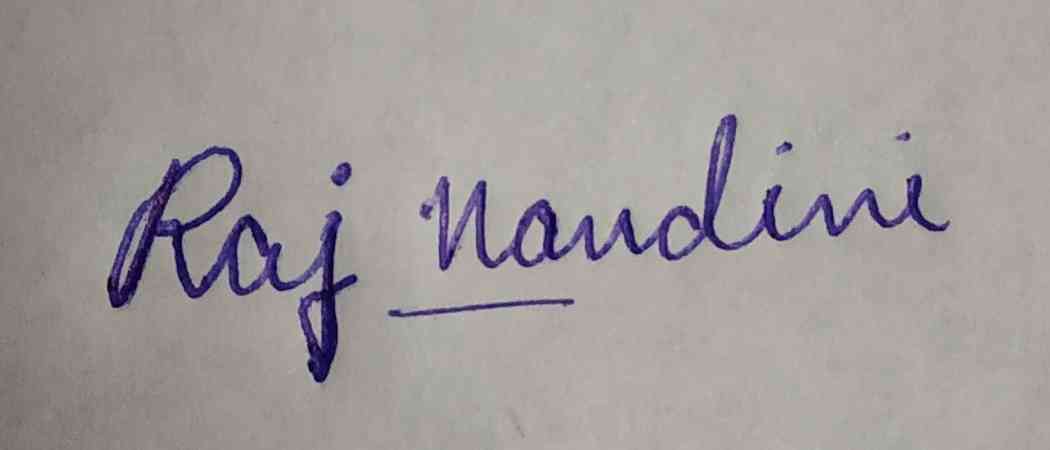 Raj Nandini